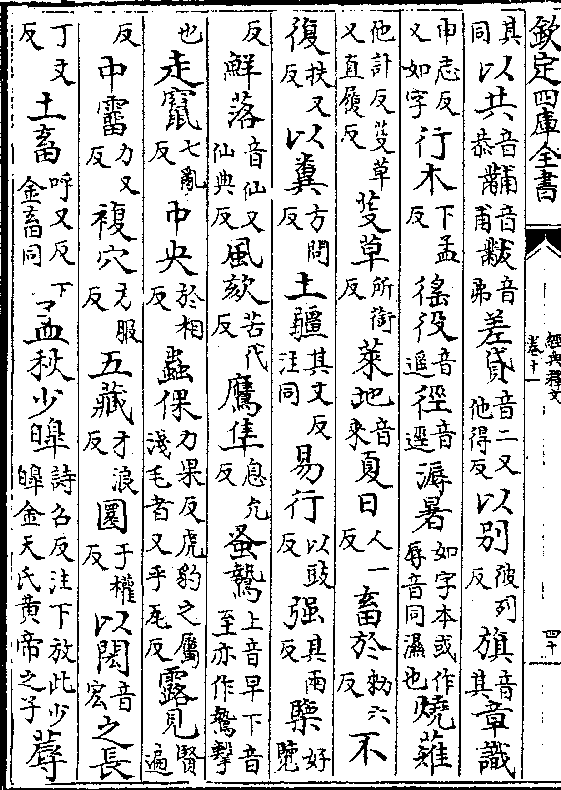 欽定四庫全書
經典釋文
卷十一
四十
其同以共音恭黼音甫黻音弗差貸音二又他得反以别彼列反旗音其章識
申志反又如字行木下孟反徭役音遥徑音逕溽暑如字本或作辱音同濕也燒薙
他計反芟草又直履反芟草所銜反萊地音來夏日人一反畜於勑六反不
復扶又反以糞方問反土疆其丈反注同易行以豉反强其兩㯺好覽
反鮮落音仙又仙典反風欬苦代反鷹隼息允反蚤鷙上音早下音至亦作鷙擊
也走竄七亂反中央於相反蟲倮力果反虎豹之屬淺毛者又乎瓦反露見賢遍
反中霤力又反複穴方服反五藏才浪反圜于權反以閎音宏之長
丁丈反土畜呼又反下金畜同孟秋少皥詩召反注下放此少皥金天氏黄帝之子蓐